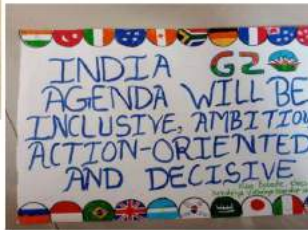 INDIA G20
AGENDA WILL BE
INCLUSIVE, AMBITIOU
ACTION-ORIENTED
AND DECISIVE